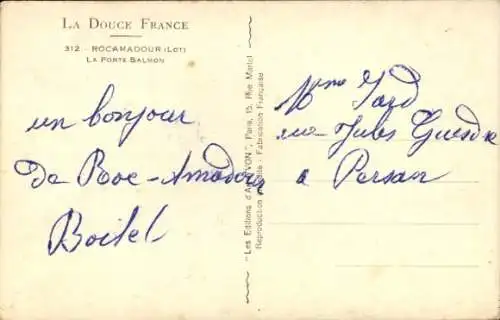 LA DOUCE FRANCE
312 - ROCAMADOUR (LOT)
LA PORTE SALMON
un bonjour
de Roc-Amadour
Boitel
"Les Editions d'Art YVON", Paris, 15, Rue Martel
Reproduction interdite - Fabrication Française
Mme Gard
rue Jules Guesde
a Persan